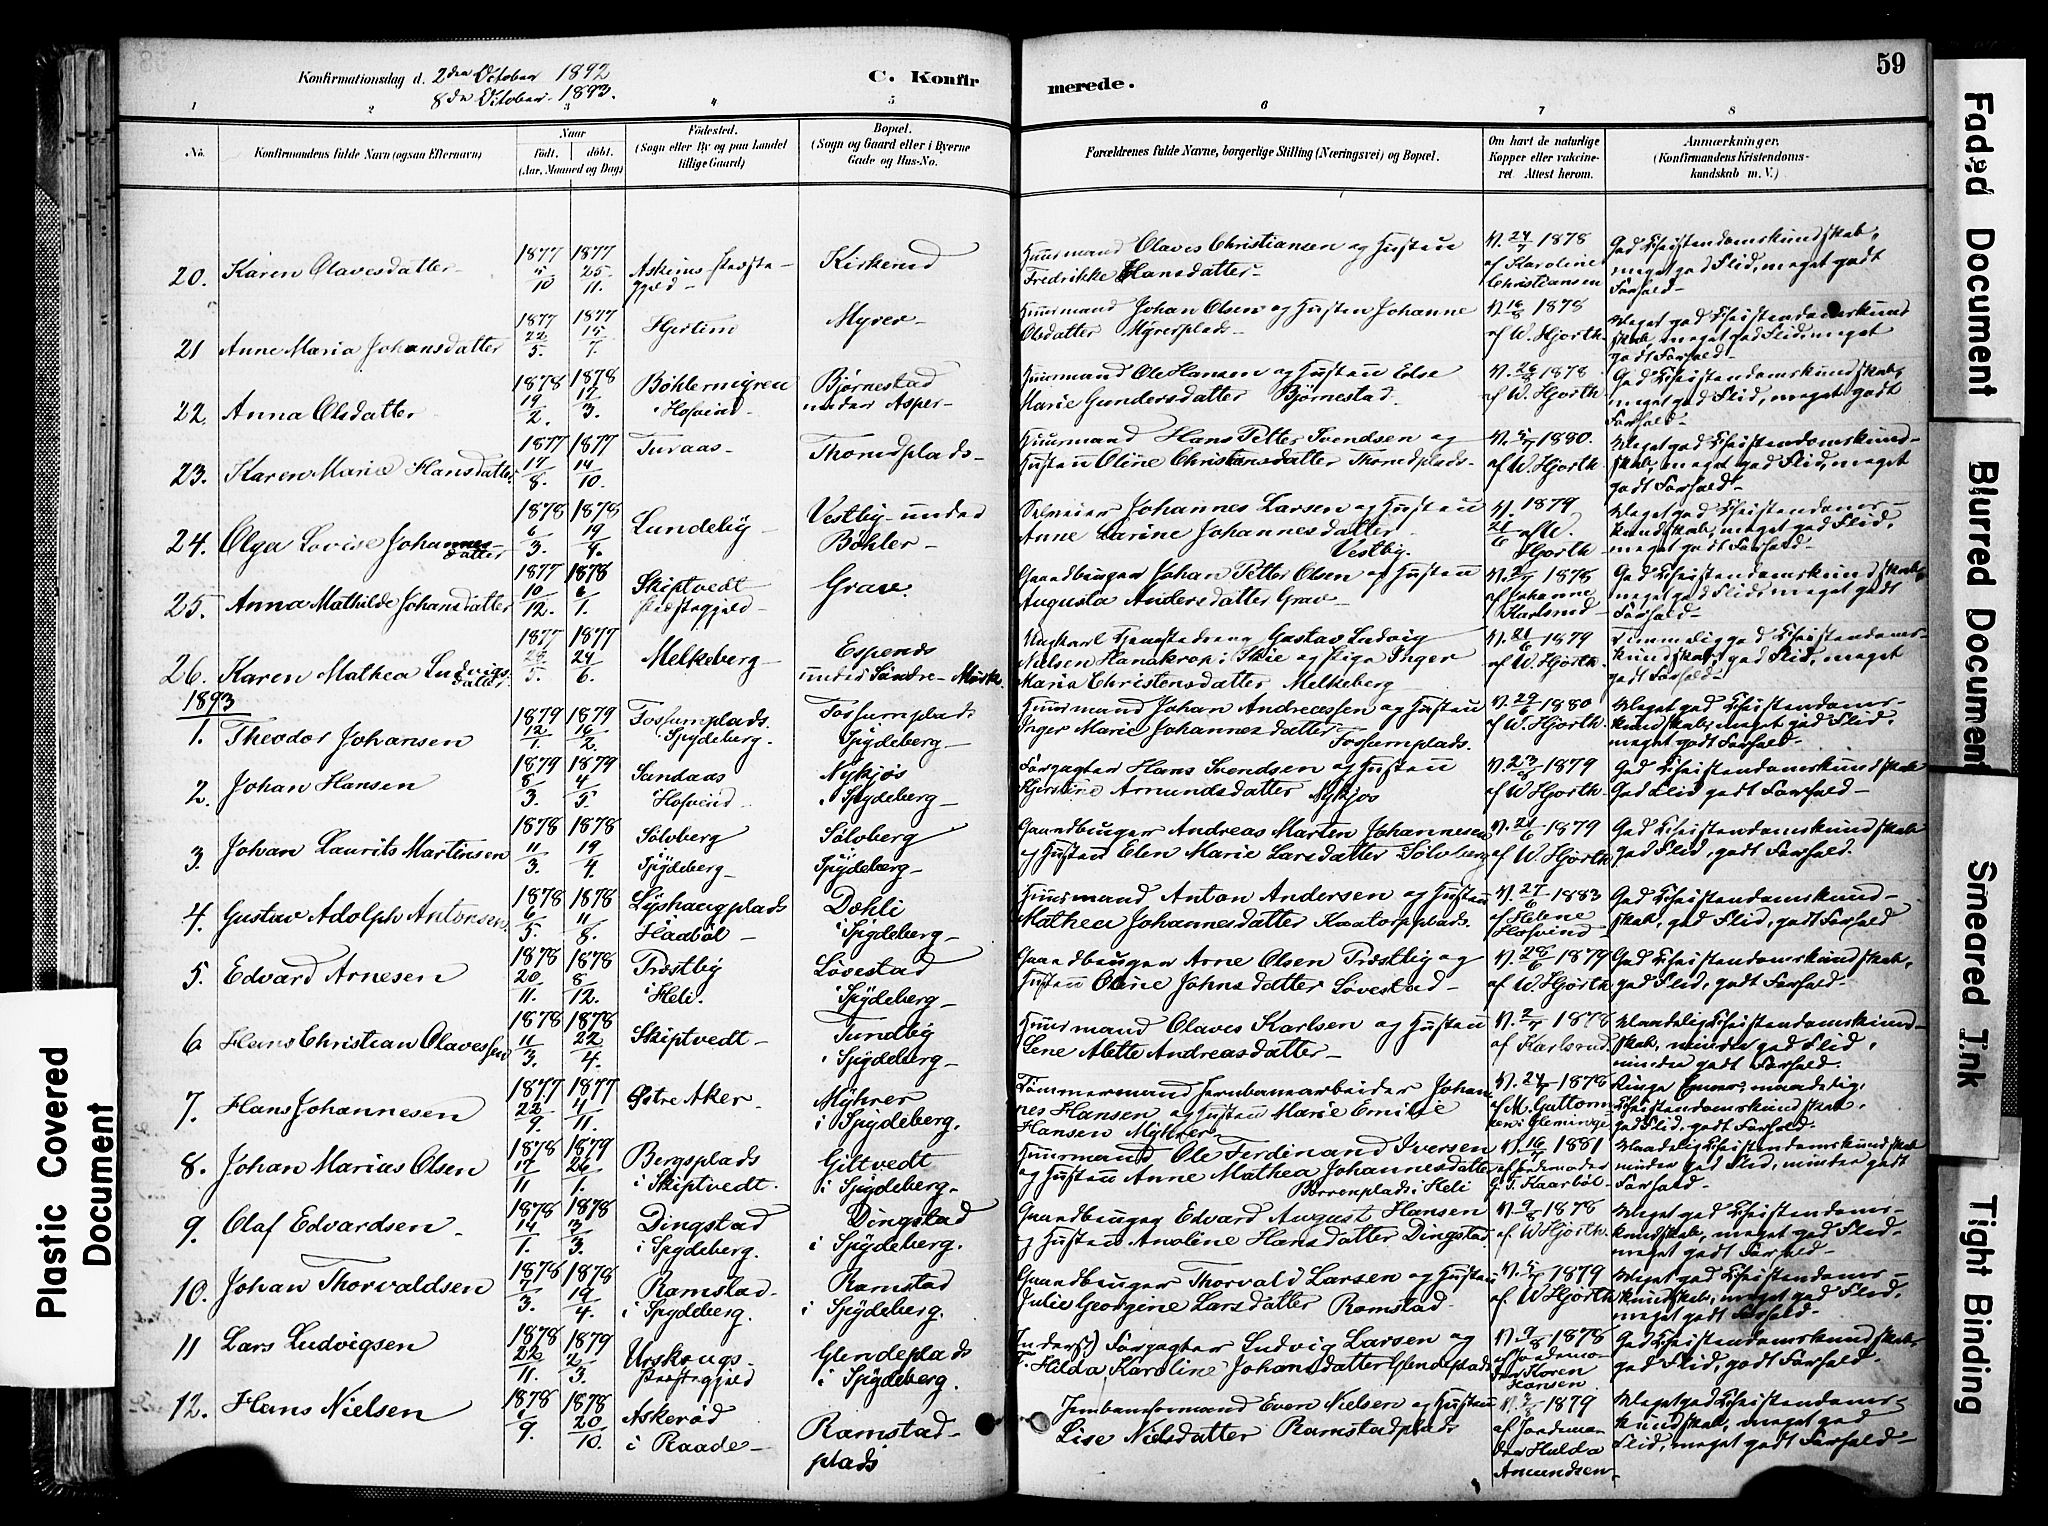 59
Konfirmationsdag d. 2den October 1892
8de October 1893.
C. Konfirmerede.
1 2 3 4 5 6 7 8
No.
Konfirmandens fulde Navn (ogsaa Efternavn)
Naar
födt. döbt.
(Aar, Maaned og Dag)
Födested.
(Sogn eller By og paa Landet
tillige Gaard)
Bopæl.
(Sogn og Gaard eller i Byerne
Gade og Hus-No.
Forældrenes fulde Navne, borgerlige Stilling (Næringsvei) og Bopæl.
Om havt de naturlige
Kopper eller vakcine-
ret Attest herom.
Anmærkninger.
(Konfirmandens Kristendoms-
kundskab m. V.)
20. Karen Olavesdatter 1877 5/10 1877 25/11. Askims Præste-
gjeld Kirkerud
Huusmand Olaves Christiansen og Hustru
Fredrikke Hansdatter
V. 24/7 1878
af Karoline
Christiansen
God Christendomskundskab,
meget god Flid, meget godt
Forhold
21 Anne Maria Johansdatter 1877 22/5. 1877 15/7. Myrer
Huusmand Johan Olsen og Hustru Johanne
Olsdatter Myrerplads
1878
af W. Hjorth
Meget god Christendomskund
skab, meget god Flid, meget
godt Forhold.
22. Anna Olsdatter 1878 19/2. 1878 17/3. i Hofvind Bjørnestad
under Asper
Huusmand Ole Hansen og Hustru Else
Marie Gundersdatter Bjørnestad
V. 26/8 1878
af W. Hjorth
God Christendomskundskab,
meget god Flid, meget godt
Forhold
23. Karen Marie Hansdatter 1877 17/8. 1877 14/10. Turaas Thorudplads
Huusmand Hans Petter Svendsen og
Hustru Oline Christansdatter Thorudplads
1880.
af W. Hjorth
Meget god Christendomskund-
skab, meget god Flid, meget
godt Forhold
24. Olga Lovise Johannes-
datter 1878 6/3. 1878 19/4. Lundeby Vestby under
Bøhler
Johannes Larsen og Hustru
Anne Karine Johannesdatter
Vestby.
V. 1879
21/6 af W.
Hjorth
Meget god Christendoms-
kundskab, meget god Flid,
meget godt Forhold
25. Anna Mathilde Johansdatter 1877 10/12. 1878 6/1. Skiptvedt
Præstegjeld Grav.
Gaardbruger Johan Petter Olsen og Hustru
Augusta Andersdatter Grav
V. 2/7 1878
af Johanne
Karlsrud
God Christendomskundskab,
meget god Flid, meget godt
Forhold
26. Karen Mathea Ludvigs-
datter. 1877 1877 24/6. Melkeberg Espenæs
under Søndre Mørk.
Ungkarl Gustav Ludvig
Nielsen i Skie og Pige Inger
Maria Christensdatter Melkeberg
V. 21/6 1879
af W. Hjorth
Temmelig god Christendoms-
kundskab, god Flid, meget
godt Forhold
1893
1. Theodor Johansen 1879 12/1. 1879 16/2. Fossumplads.
Spydeberg. Fossumplads
Spydeberg
Huusmand Johan Andreassen og Hustru
Inger Marie Johannesdatter
Fossumplads.
V. 29/6 1880
af W. Hjorth
Meget god Christendoms-
kundskab, meget god Flid,
meget godt Forhold
2. Johan Hansen 1879 8/3. 1879 4/5. Sandaas
i Hofvind. Nykjøs
i Spydeberg
Forpagter Hans Svendsen og Hustru
Amundsdatter Nykjøs
V. 23/8 1879
af W Hjorth
God Christendomskundskab
God Flid godt Forhold
3. Johan Laurits Martinsen 1878 11/3. 1878 19/4. Sølvberg
Spydeberg Sølvberg
Spydeberg
Gaardbruger Andreas Marten Johannesen
og Hustru Elen Marie Larsdatter Sølvberg
V. 21/6 1879
af W. Hjorth
God Christendomskundskab
god Flid, godt Forhold.
4. Gustav Adolph Antonsen 1878 6/5. 1878 11/8. Lyshaugplads
Haabøl Dæhli
i Spydeberg
Huusmand Anton Andersen og Hustru
Mathea Johannesdatter Kaatorpplads.
V. 27/6 1883
af Helene
Hofvind
God Christendomskund-
skab, god Flid, godt Forhold
5. Edvard Arnesen 1878 20/11. 1878 8/12. Træstby
i Heli. Løvestad
i Spydeberg
Gaardbruger Arne Olsen Træstby og
Hustru Oline Johnsdatter Løvestad
V. 28/6 1879
af W. Hjorth
God Christendomskundskab,
god Flid, godt Forhold
6 Hans Christian Olavessen 1878 11/3. 1878 22/4. Skiptvedt Tundby
i Spydeberg
Huusmand Olaves Karlsen og Hustru
Lene Alette Andreasdatter
V. 2/7 1878
af Karlsrud.
Maadelig Christendomskund-
skab, mindre god Flid,
mindre godt Forhold.
7. Hans Johannesen 1877 22/9. 1877 4/11. Østre Aker Myhrer
i Spydeberg.
Tømmermand Jernbanearbeider Johan
nes Hansen og Hustru Marie Emilie
Hansen Myhrer
1878
af M. Guttorm-
sen i Glemminge
Ringe Evner, maadelig
Christendomskundskab,
god Flid, godt Forhold.
8. Johan Marius Olsen 1878 17/11 1879 26/1. Bergsplads
i Skiptvedt. Giltvedt
i Spydeberg
Huusmand Ole Ferdinand Iversen
og Hustru Anne Mathea Johannesdatter
i Heli
V. 16/7 1881
af Jordemoder
G. T. Haarbøl
Maadelig Christendomskundskab
mindre god Flid, mindre godt
Forhold
9. Olaf Edvardsen 1878 14/1. 1878 3/3. Dingstad
i Spydeberg. Dingstad
i Spydeberg.
Gaardbruger Edvard August Hansen
og Hustru Anoline Hansdatter Dingstad
V. 9/8 1878
af. W Hjorth
Meget god Christendoms-
kundskab, meget god Flid
meget godt Forhold
10. Johan Thorvaldsen 1878 7/3. 1878 19/4. Ramstad
i Spydeberg. Ramstad
i Spydeberg.
Gaardbruger Thorvald Larsen og Hustru
Julie Georgine Larsdatter Ramstad
1879
af. W Hjorth
Meget god Christendoms-
kundskab, meget god Flid,
meget godt Forhold
11 Lars Ludvigsen 1878 22/11. 1879 2/3. Urskougs
Præstegjeld Glendeplads
i Spydeberg.
Inderst) Forpagter Ludvig Larsen og
Hilda Karoline Johansdatter Glendeplads
V. 9/8 1878
af Jordemo-
der Karen
Hansen
God Christendomskundskab
god Flid, godt Forhold.
12. Hans Nielsen 1878 1/9. 1878 20/10. Askerød
i Raade Ramstad-
plads
Jernbaneformand Even Nielsen og Hustru
Lise Nielsdatter Ramstadplads
1879
af Jordemo-
der Hulda
Amundsen
Meget god Christendoms-
kundskab, meget god
Flid, meget godt Forhold
Plastic Covered
Document
Faded Document
Blurred Document
Smeared Ink
Tight Binding